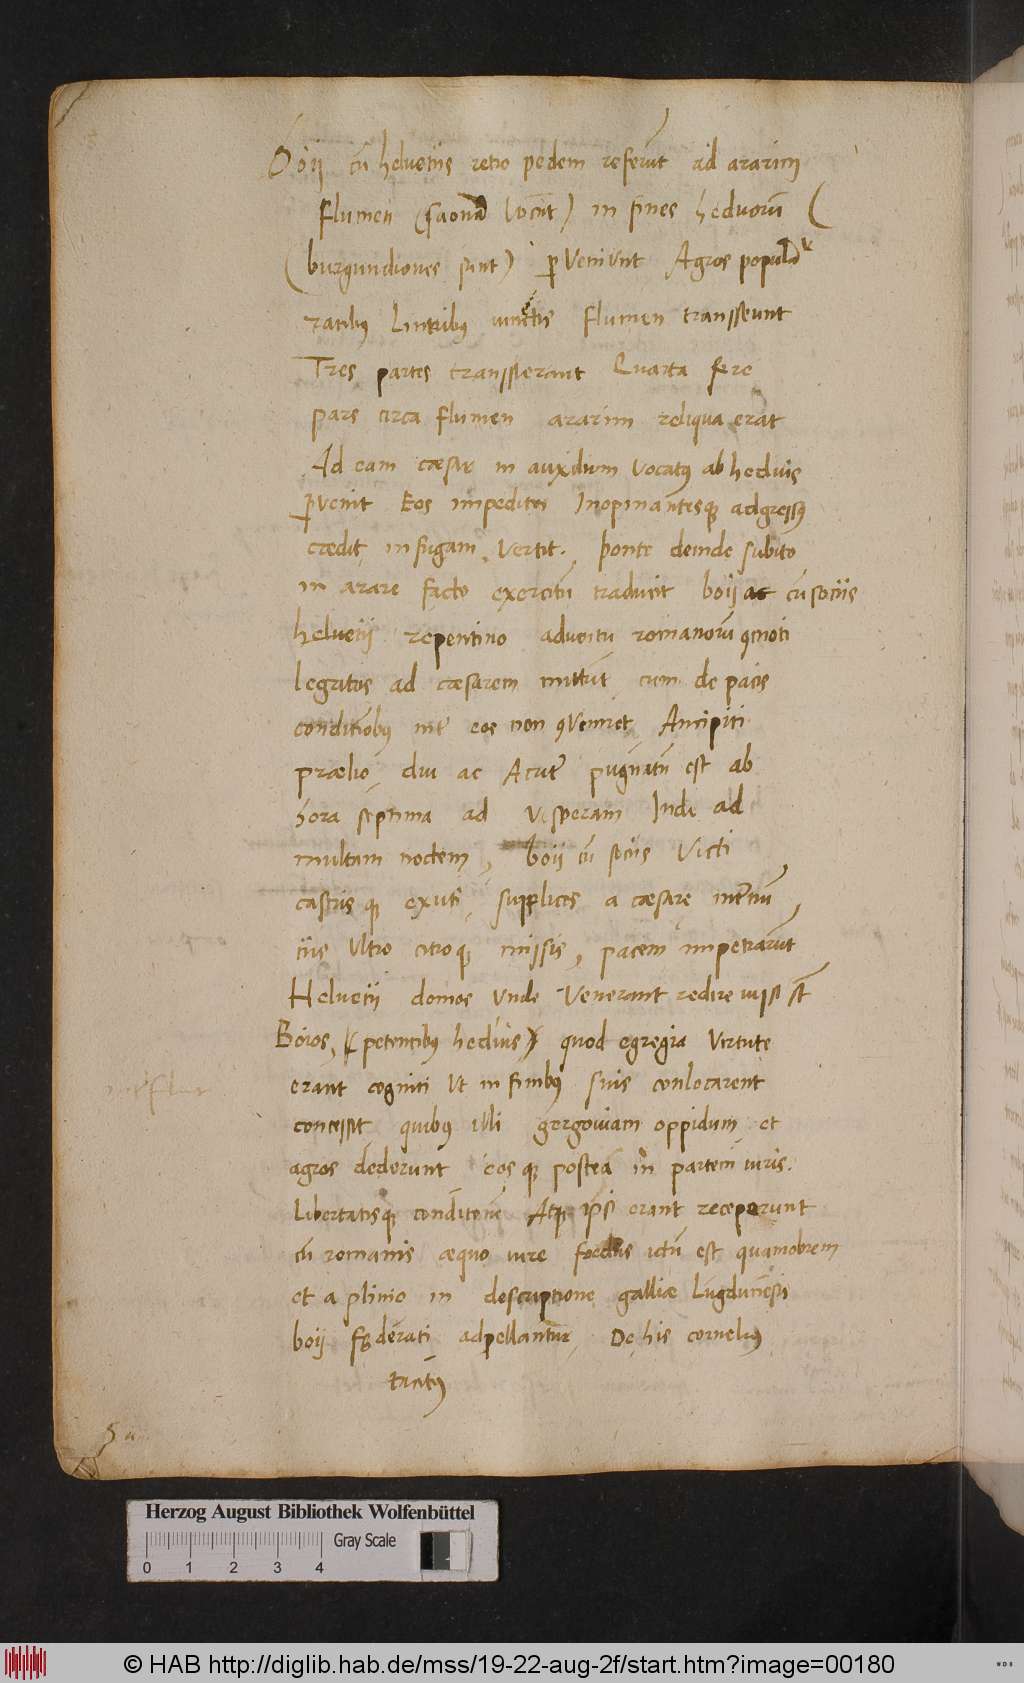 Boij cũ helvetiis retro pedem referũt ad ararim
flumen (saonã vocãt) in fines heduorũ (
(burgundiones sunt) ꝑveniunt Agros populãr
ratibus lintribus iunctis flumen transseunt
Tres partes transierant Quarta fere
pars circa flumen ararim reliqua erat
Ad eam cæsar in auxilium vocatus ab heduis
ꝑvenit Eos impeditos Inopinantesque adgressus
cædit in fugam vertit. ponte deinde subito
in arare facto exercitũ traducit boij ac cũ sociis
helvetij repentino adventu romanorũ ꝯmoti
legatos ad cæsarem mittũt cum de pacis
conditionibus inter eos non ꝯveniret Ancipiti
prælio diu ac Acriter pugnatũ est ab
hora septima ad vesperam Inde ad
multam noctem, boij cũ sociis victi
castrisque exuti, supplices a cæsare internũ
tiis ultro citroque missis, pacem impetrarũt
Helvetij domos unde venerant redire iussi sũt
Boios, (petentibus heduis) quod egregia virtute
erant cogniti ut in finibus suis conlocarent
concessit quibus illi gergoviam oppidum et
agros dederunt eosque postea in partem iuris.
Libertatisque conditionẽ Atque ipsi erant receperunt
cũ romanis æquo iure foedus ictũ est quamobrem
et a plinio in descriptione galliæ Lugdunẽsis
boij fęderati adpellantur, De his cornelius
tacitus
Herzog August Bibliothek Wolfenbüttel
Gray Scale
0 1 2 3 4
© HAB http://diglib.hab.de/mss/19-22-aug-2f/start.htm?image=00180